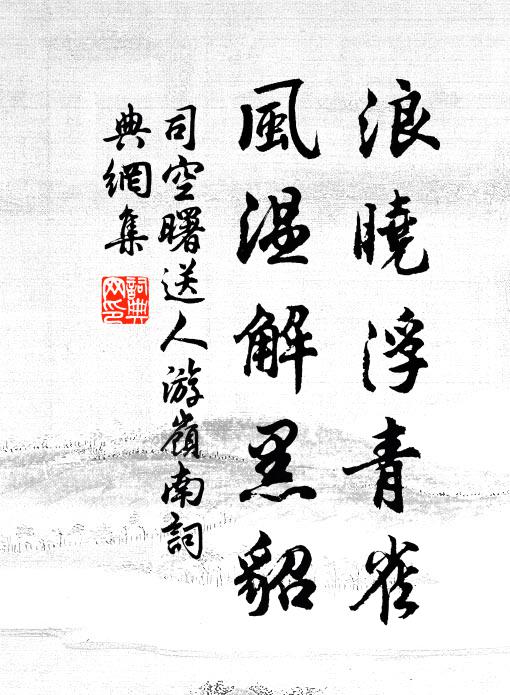 浪曉浮青雀
風温解黑貂
司空曙送人游嶺南詞
典網集
詞典网印